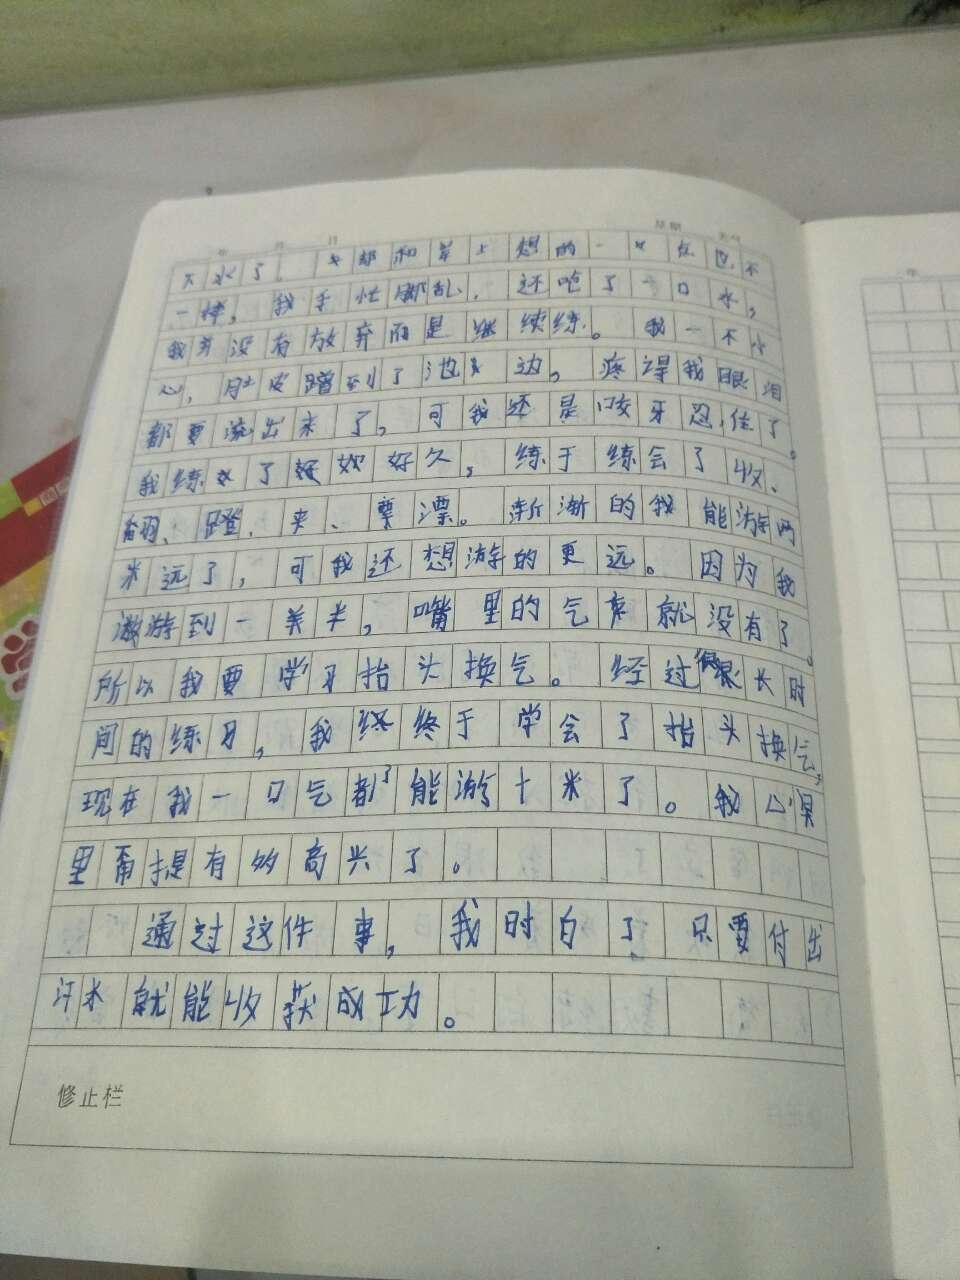 年 月 日 星期 天气
下水了, 都和岸上想的一点也不
一样, 我手忙脚乱, 还呛了一口水,
我并没有放弃而是继续练。我一不小
心, 肚皮蹭到了池边。疼得我眼泪
都要流出来了, 可我还是咬牙忍住了。
我练了好久好久, 练于练会了收、
翻、蹬、夹、漂。渐渐的我能游两
米远了, 可我还想游的更远。因为我
游到一米, 嘴里的气就没有了。
所以我要学习抬头换气。经过很长时
间的练习, 我终于学会了抬头换气,
现在我一口气都能游十米了。我心
里甭提有多高兴了。
通过这件事, 我明白了只要付出
汗水就能收获成功。
修止栏
年